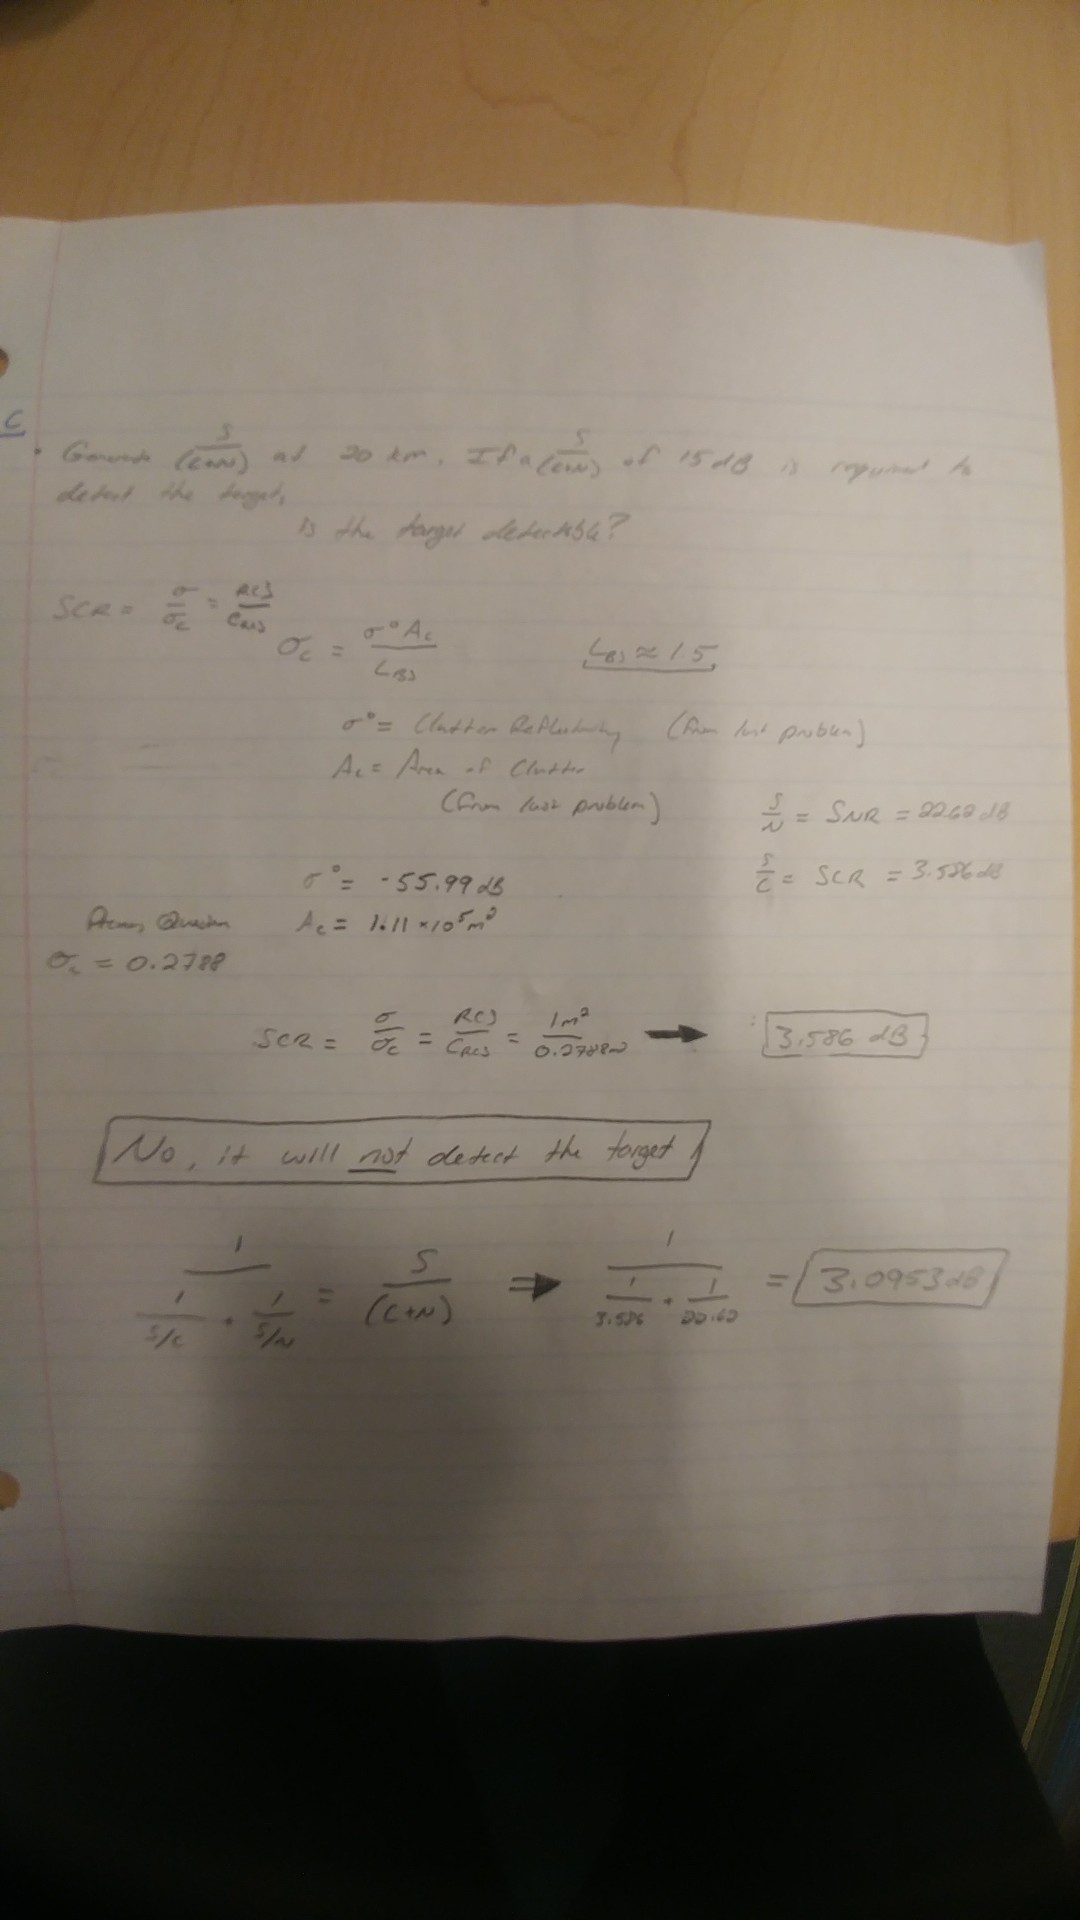 C
S/(C+N) at 20 km. If a S/(C+N) of 15 dB is required to
detect the target,
is the target detectible?
SCR = σ/σc = RCS/CRCS
σc = σ° Ac / LBS
LBS ≈ 1.5
σ° = Clutter Reflectivity (from last problem)
Ac = Area of Clutter
(from last problem)
S/N = SNR = 22.62 dB
S/C = SCR = 3.586 dB
σ° = -55.99 dB
Question
Ac = 1.11 × 10⁵ m²
σc = 0.2788
SCR = σ/σc = RCS/CRCS = 1m²/0.2788 → 3.586 dB
No, it will not detect the target
1/(1/S/C + 1/S/N) = S/(C+N) ⇒ 1/(1/3.586 + 1/22.62) = 3.0953 dB